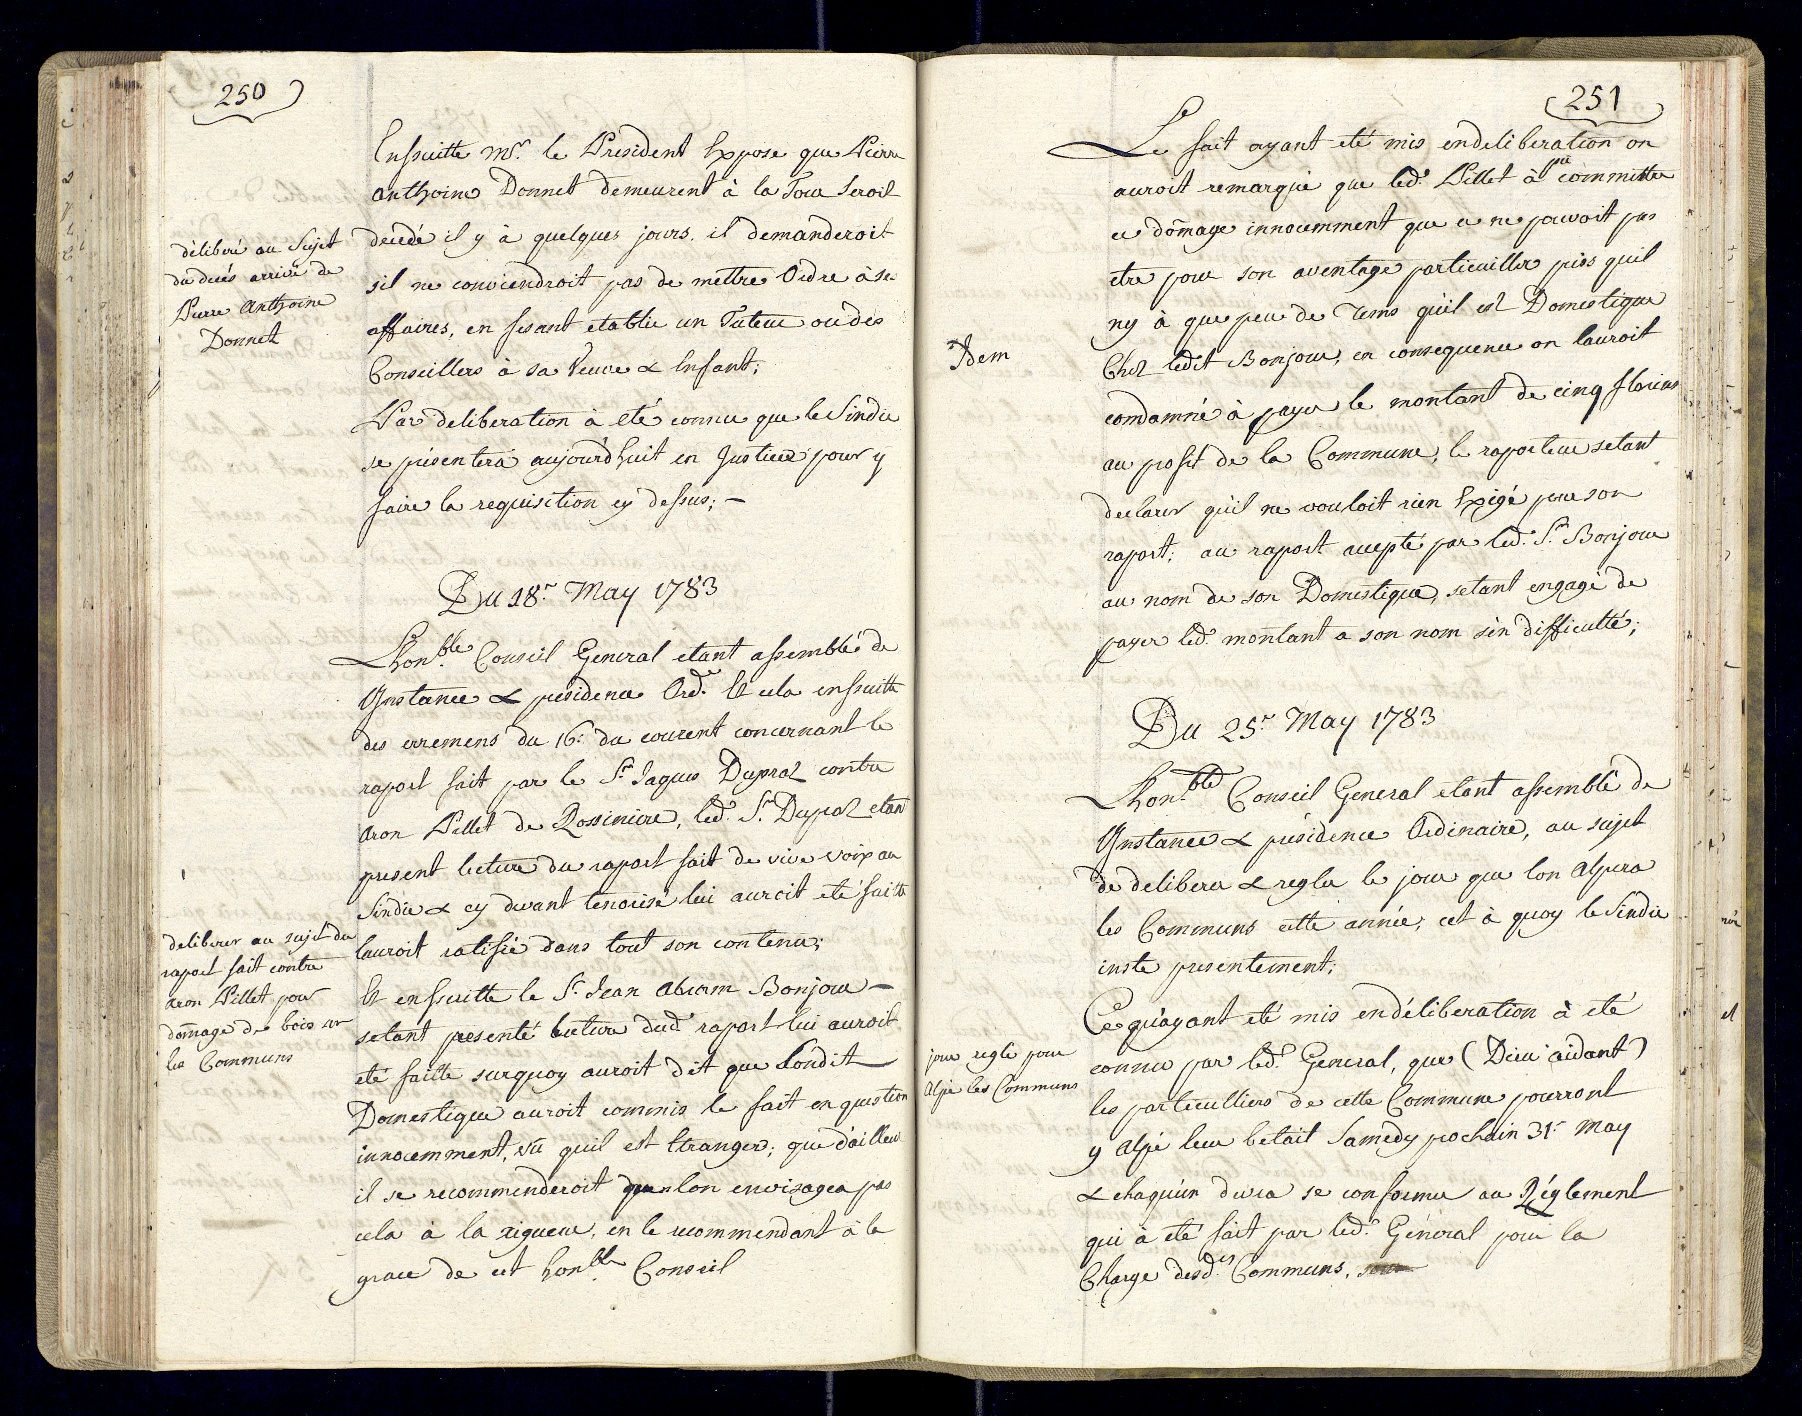 250
Ensuitte Mr. le President Expose que Pierre
Anthoine Donnet demeurent à la Tour Seroit
decedé il y à quelques jours. il demanderoit
sil ne conviendroit pas de mettre Ordre à ses
affaires, en fesant etablir un Tuteur ou des
Conseillers à sa Veuve & Enfant;
Par deliberation à eté connu que le Sindic
se présentera aujourd'huit en Justice pour y
faire la requisition cy dessus; –
déliberé au Sujet
du decés arrivé de
Pierre Anthoine
Donnet
Du 18r. May 1783
Lhonble. Conseil General etant assemblé de
Instance & présidence Ord.e Et cela ensuitte
des erremens du 16: du courent concernant le
raport fait par le Sr. Jaques Dupraz contre
Aron Pillet de Rossiniere, led. Sr. Dupraz etant
present lecture du raport fait de vive voix au
Sindic & cy devant tenorisé lui auroit eté faitte
lauroit ratifié dans tout son contenu;
Et ensuitte le Sr. Jean Abram Bonjour –
setant presenté lecture dud. raport lui auroit
eté faitte surquoy auroit dit que Londit
Domestique auroit commis le fait en question
innocemment, vû quil est Etranger; que d'ailleur
il se recommenderoit que lon envisagea pas
cela à la rigueur, en le recommendant à la
grace de cet honble. Conseil
deliberer au sujet du
raport fait contre
Aron Pillet pour
dômage de bois sur
les Communs
251
Le fait ayant eté mis en deliberation on
auroit remarqué que led. Pillet à pû committre
ce dômage innocemment que ce ne pouvoit pas
etre pour son aventage particuillier puis quil
ny à que peu de Tems qu'il est Domestique
Chez ledit Bonjour; en consequence on lauroit
condamné à payer le montant de cinq florins
au profit de la Commune; le raporteur setant
declarer qu'il ne vouloit rien Exigé pour son
raport; au raport acepté par led. Sr. Bonjour
au nom de son Domestique, setant engagé de
payer led. montant a son nom sèn difficulté;
Idem
Du 25r. May 1783
Lhonble. Conseil General etant assemblé de
Instance & présidence Ordinaire, au sujet
de deliberer & regler le jour que lon Alpera
les Communs cette année; cet à quoy le Sindic
inste presentement;
Ce qu'ayant eté mis en déliberation à eté
connu par led. General, que (Dieu aidant)
les particulliers de cette Commune pourront
y Alpé leur betail Samedy prochain 31r. May
& chaquun devra se conformer au Réglement
qui à eté fait par led. Général pour la
Charge desd.es Communs,
jour reglé pour
Alpé les Communs